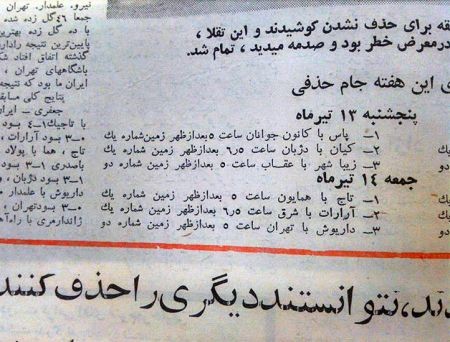 قه برای حذف نشدن کوشیدند و این تقلا،
درمعرض خطر بود و صدمه میدید ، تمام شد.
ی این هفته جام حذفی
پنجشنبه ۱۳ تیرماه
۱ــ پاس با کانون جوانان ساعت ۵ بعدازظهر زمین‌شماره یك
۲ــ کیان با دژبان ساعت ۶٫۵ بعدازظهر زمین شماره یك
۳ــ زیبا شهر با عقاب ساعت ۵ بعدازظهر زمین شماره دو
جمعه ۱۴ تیرماه
۱ــ تاج با همایون ساعت ۵ بعدازظهر زمین شماره یك
۲ــ آرارات با شرق ساعت ۶٫۵ بعدازظهر زمین شماره یك
۳ــ داریوش با تهران ساعت ۵ بعدازظهر زمین شماره دو
ند، نتوانستند دیگری را حذف کنند
نیرو، علمدار.
جمعا ۴۶ گل زده شد
با ده گل زده بهترین
پایین‌ترین نتیجه
گذشته اتفاق افتاد
باشگاههای تهران ،
ایران ما بود که نتیجه
نتایج کلی
جعفری ــ ایران
با تاجیك ۱ــ۴ بود
۰ــ۳ بود آرارات ،
تاج ، هما با پولاد
باصدری ۱ــ۳ بود
۰ــ۱ بود دژبان ،
داریوش با علمدار
۰ــ۳ بود تهران ،
ژاندارمری با راه‌آهن
یك
یك
دو
یك
یك
دو